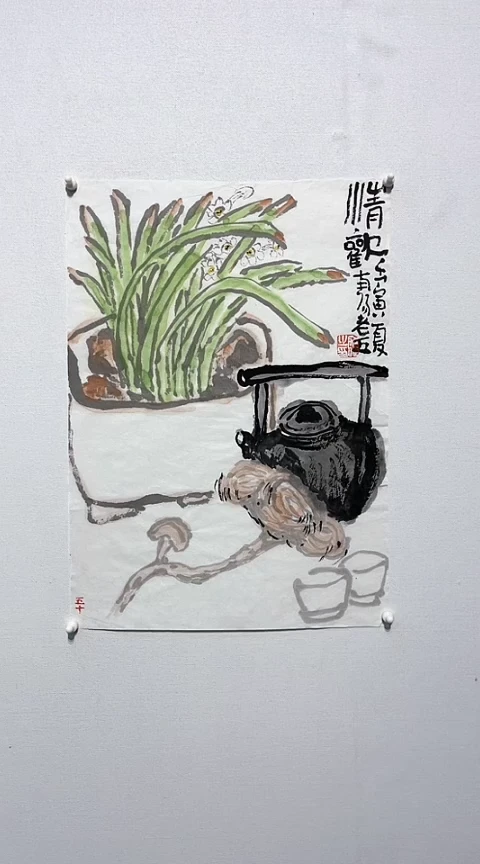 清歡
壬寅夏
老五
五十